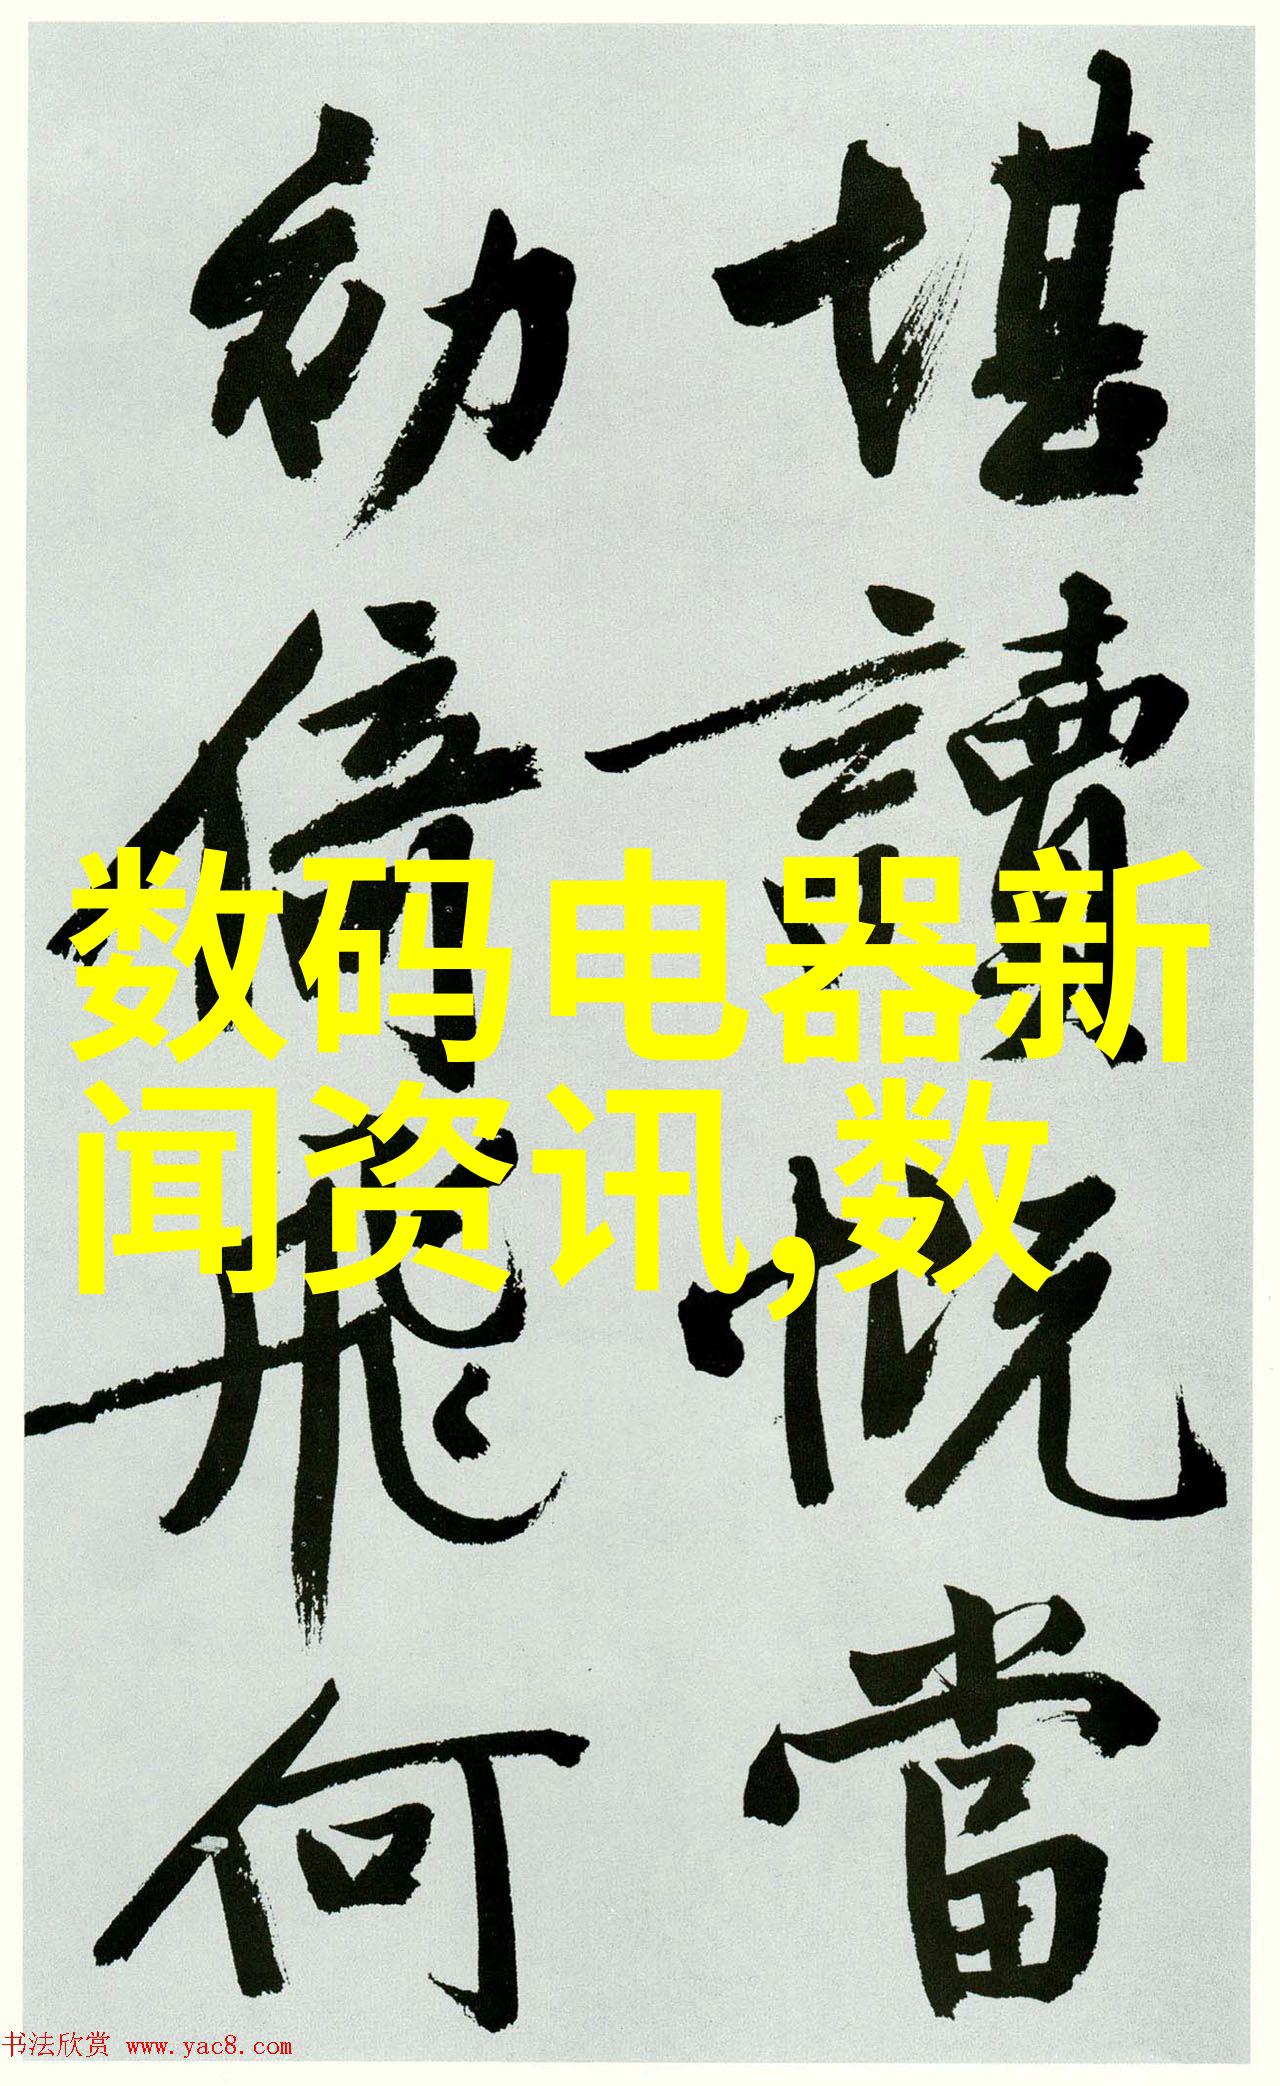 堪讀慨當
幼倍飛何
数码电器新
闻资讯,数
书法欣赏 www.yac8.com